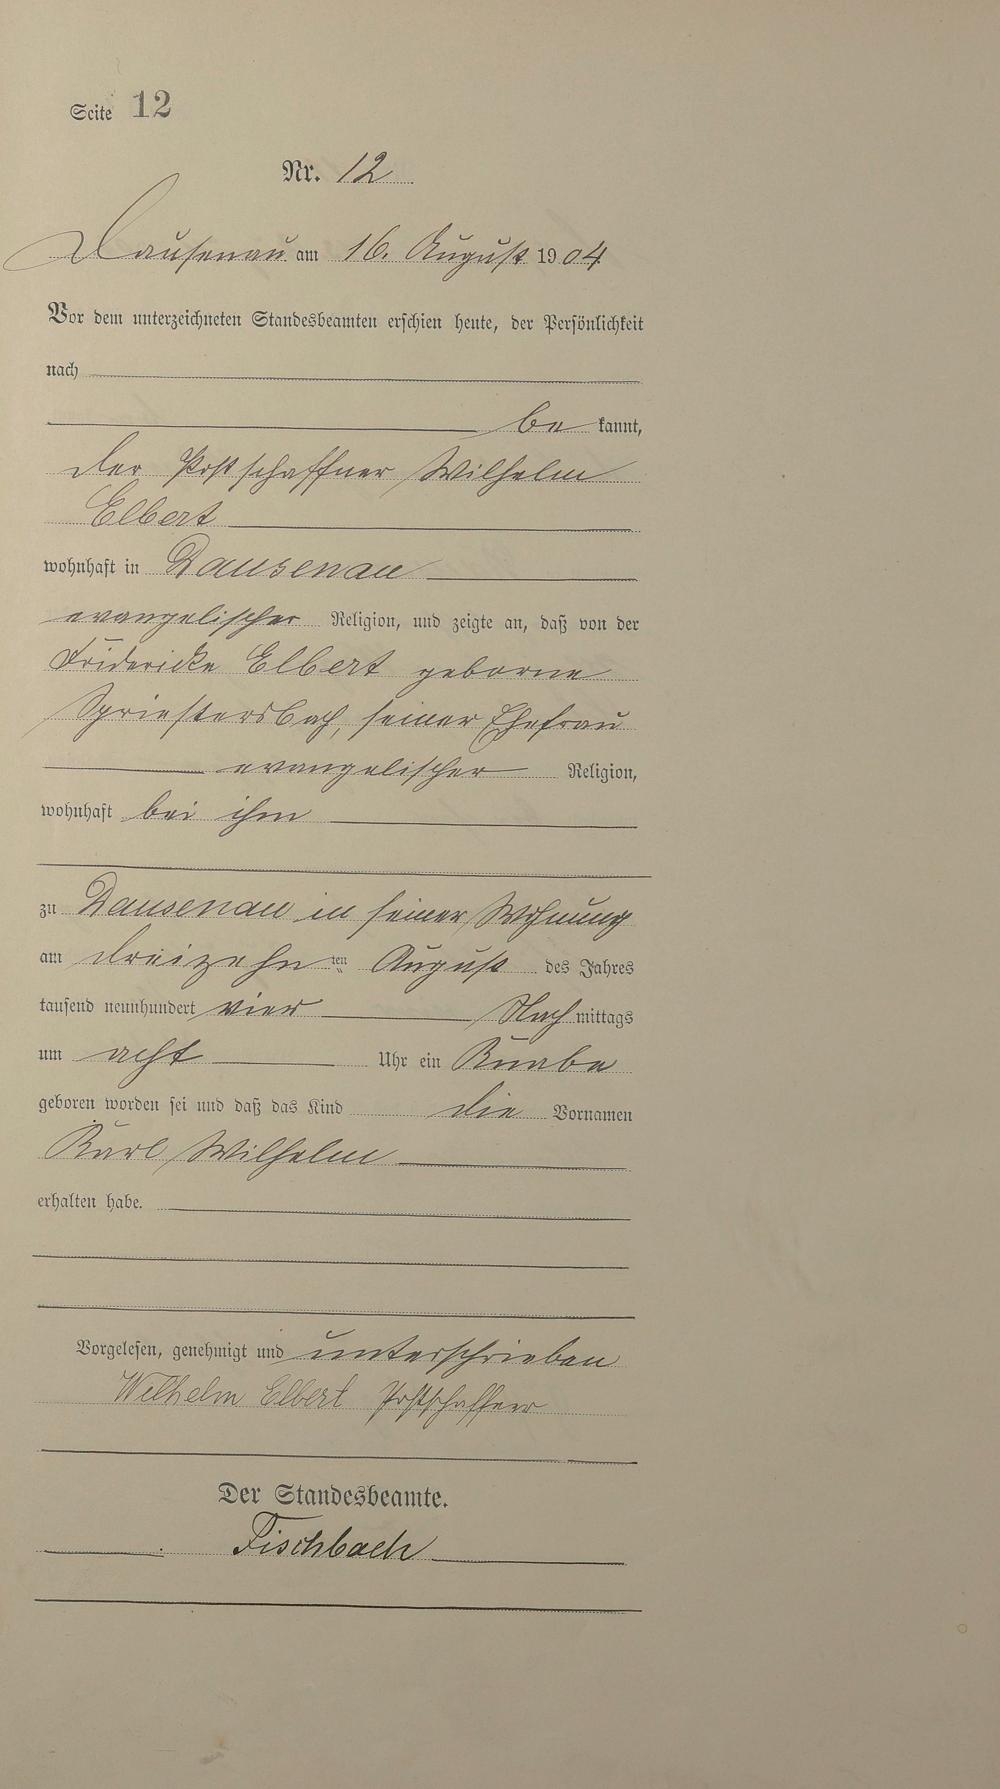 Seite 12
Nr. 12
Dausenau am 16. August 1904
Vor dem unterzeichneten Standesbeamten erschien heute, der Persönlichkeit
nach
be kannt,
der Postschaffner Wilhelm
Elbert
wohnhaft in Dausenau
evangelischer Religion, und zeigte an, daß von der
Fridericke Elbert geborne
Spriestersbach, seiner Ehefrau
evangelischer Religion,
wohnhaft bei ihm
zu Dausenau in seiner Wohnung
am dreizehn ten August des Jahres
tausend neunhundert vier Nach mittags
um acht Uhr ein Knabe
geboren worden sei und daß das Kind die Vornamen
Karl Wilhelm
erhalten habe.
Vorgelesen, genehmigt und unterschrieben
Wilhelm Elbert Postschaffner
Der Standesbeamte.
Fischbach